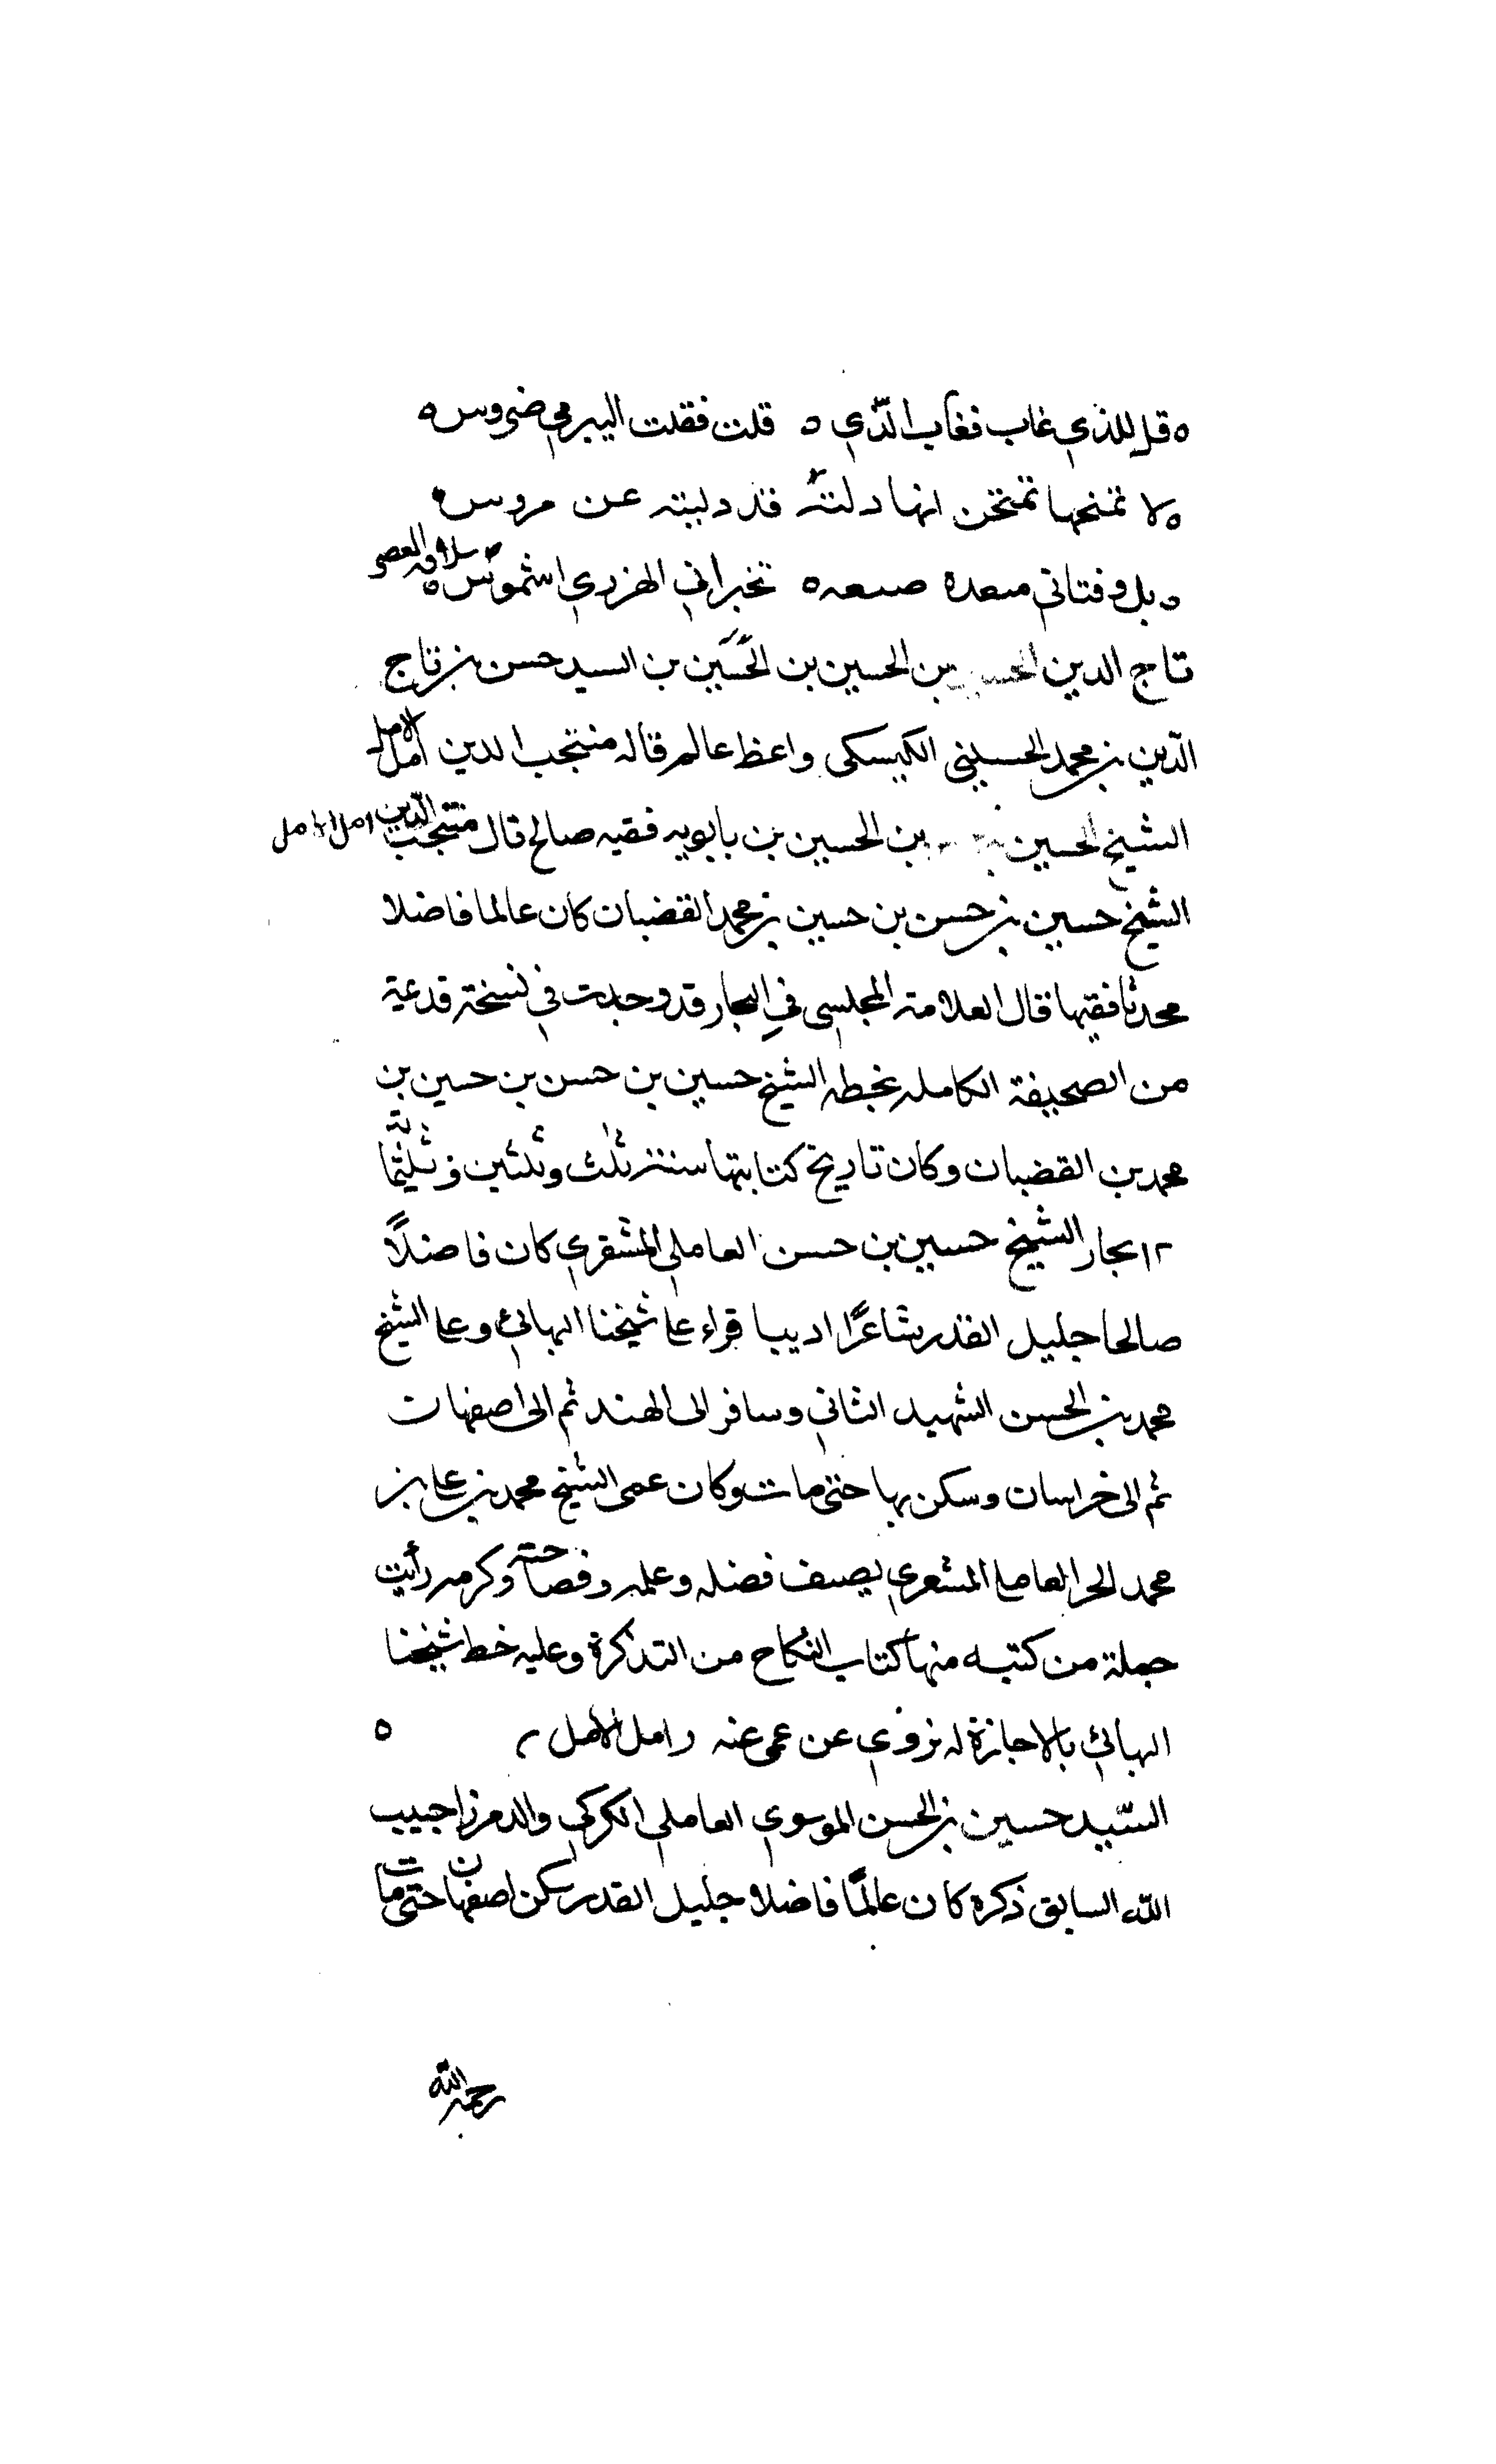 قل للذي غاب فغاب الذي قلت فقلت البير في ضروس
لا تمنحها تمتحن انها دلنته قد دليته عن مروس
بل وفتاتي مبعدة تخبر اني الهزري اشموس سلافه العصر
تاج الدين الحسين بن الحسين بن الحسين بن السيد حسن بن تاج
الدين بن محمد الحسيني الكيسكي واعظ عالم قاله منتجب الدين امل الامل
الشيخ الحسين بن الحسين بن بابويه فقيه صالح قال منتجب الدين امل الامل
الشيخ حسين بن حسن بن حسين بن محمد القضبان كان عالما فاضلا
محدثا فقيها قال العلامة المجلسي في البحار قد وجدت في نسخة قديمة
من الصحيفة الكامله بخطه الشيخ حسين بن حسن بن حسين بن
محمد بن القضبان وكان تاريخ كتابتها سنة ثلث وثلثين وثلثمائة
١٢ بحار الشيخ حسين بن حسن العاملي المشغري كان فاضلاً
صالحا جليل القدر شاعرًا اديبا قراء على شيخنا البهائي وعلى الشيخ
محمد بن الحسن الشهيد الثاني وسافر الى الهند ثم الى اصفهان
ثم الى خراسان وسكن بها حتى مات وكان عمى الشيخ محمد بن على بن
محمد الحر العاملى المشغري يصف فضله وعلمه وفصاحته وكرمه رأيت
جملة من كتبه منها كتاب النكاح من التذكرة وعليه خط شيخنا
البهائي بالاجازة له نروي عن عمى عنه امل الامل
السيد حسين بن الحسن الموسوي العاملي الكركي والد مرزا حبيب
الله السابق ذكره كان عالمًا فاضلا جليل القدر سكن اصفهان حتى مات
رحمه الله